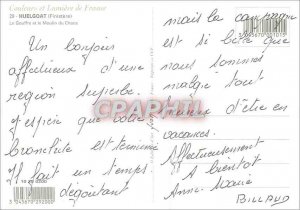 Couleurs et Lumière de France
29 - HUELGOAT (Finistère)
Le Gouffre et le Moulin du Chaos
Un bonjour
affectueux d'une
région superbe.
J'espère que votre
bronchite est terminée
Il fait un temps
dégoutant
mais la campagne
est si belle que
nous sommes
malgré tout
heureux d'être en
vacances.
Affectueusement
A bientôt
Anne-Marie
BILLAUD
CPARAMA